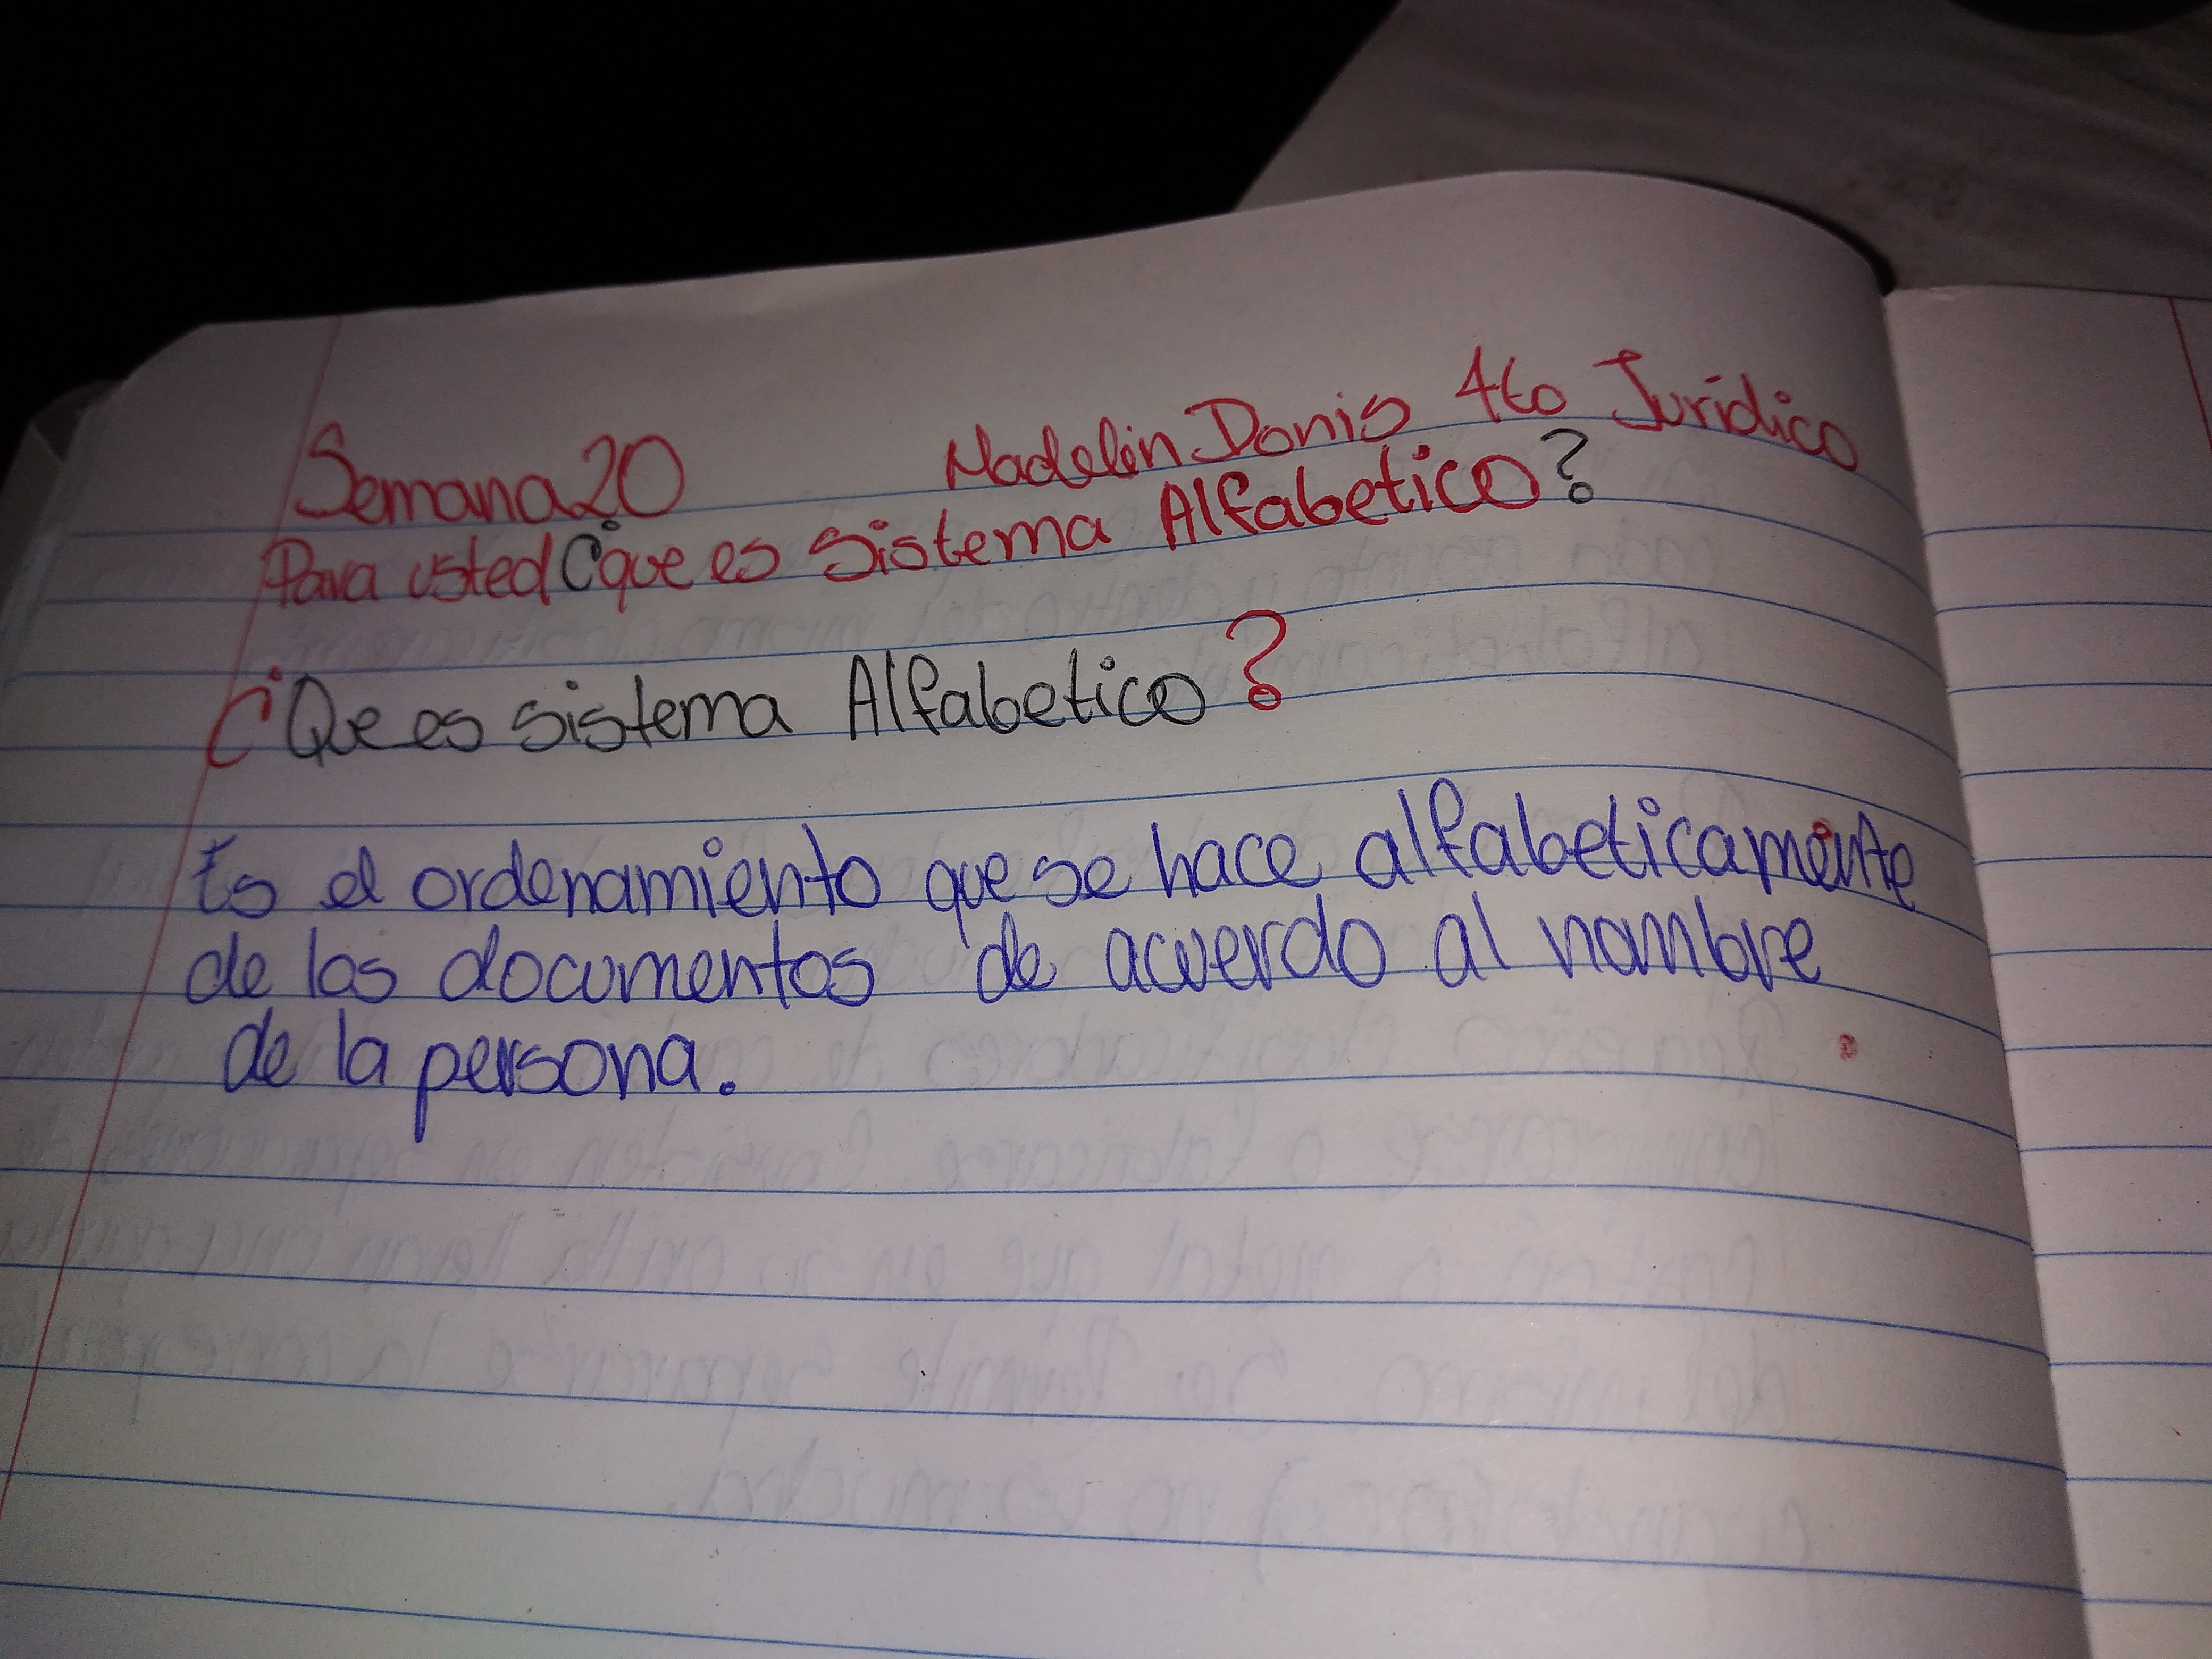 Semana 20 Madelin Donis 4to Jurídico
Para usted ¿que es sistema Alfabetico?
¿Que es sistema Alfabetico?
Es el ordenamiento que se hace alfabeticamente
de los documentos de acuerdo al nombre
de la persona.